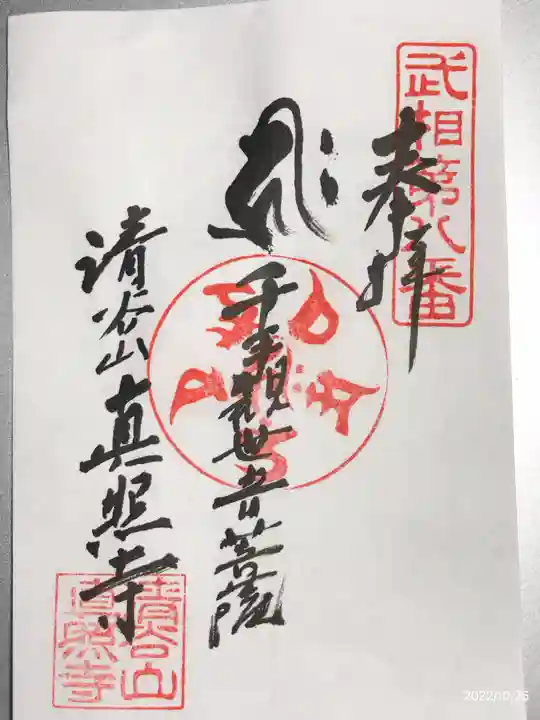 武相第八番
奉拝
千手観世音菩薩
清谷山真照寺
清谷山
真照寺
2022/10/25